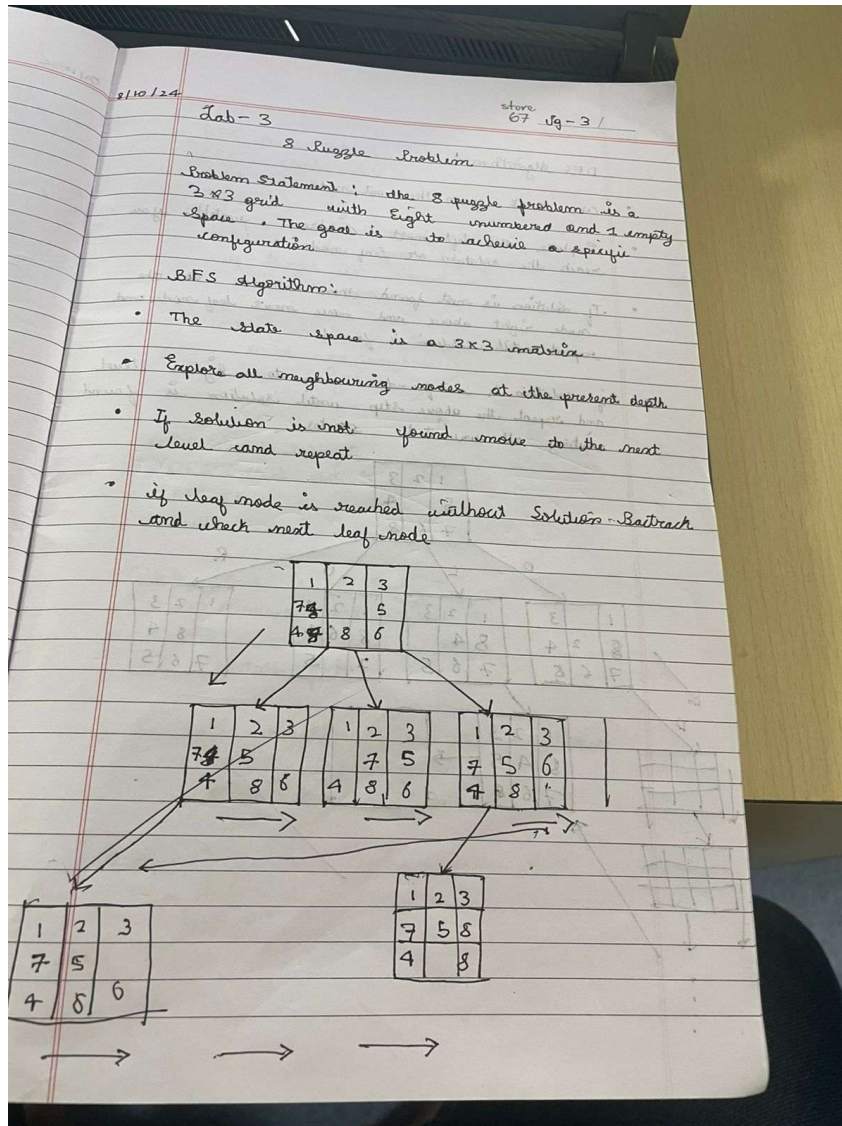 8/10/24
store
Lab - 3 67 Jg - 3 /
8 Puzzle Problem
Problem Statement : the 8 puzzle problem is a
3 x 3 grid with Eight numbered and 1 empty
space . The goal is to acheive a spicific
configuration
BFS Algorithm:
• The state space is a 3 x 3 matrix
• Explore all neighbouring nodes at the present depth
• If solution is not found move to the next
level and repeat
• if leaf node is reached without Solution - Bactrack
and check next leaf node
1 2 3
7 5
4 8 6
1 2 3 1 2 3 1 2 3
7 5 7 5 7 5 6
4 8 6 4 8 6 4 8
1 2 3
7 5 8
4 8
1 2 3
7 5
4 8 6